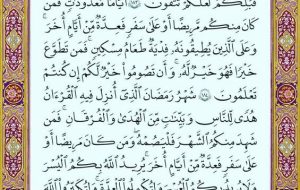 قَبْلِكُمْ لَعَلَّكُمْ تَتَّقُونَ ١٨٣ أَيَّامًا مَّعْدُودَٰتٍ فَمَن
كَانَ مِنكُم مَّرِيضًا أَوْ عَلَىٰ سَفَرٍ فَعِدَّةٌ مِّنْ أَيَّامٍ أُخَرَ
وَعَلَى ٱلَّذِينَ يُطِيقُونَهُۥ فِدْيَةٌ طَعَامُ مِسْكِينٍ فَمَن تَطَوَّعَ
خَيْرًا فَهُوَ خَيْرٌ لَّهُۥ وَأَن تَصُومُوا۟ خَيْرٌ لَّكُمْ إِن كُنتُمْ
تَعْلَمُونَ ١٨٤ شَهْرُ رَمَضَانَ ٱلَّذِىٓ أُنزِلَ فِيهِ ٱلْقُرْءَانُ
هُدًى لِّلنَّاسِ وَبَيِّنَٰتٍ مِّنَ ٱلْهُدَىٰ وَٱلْفُرْقَانِ فَمَن
شَهِدَ مِنكُمُ ٱلشَّهْرَ فَلْيَصُمْهُ وَمَن كَانَ مَرِيضًا أَوْ
عَلَىٰ سَفَرٍ فَعِدَّةٌ مِّنْ أَيَّامٍ أُخَرَ يُرِيدُ ٱللَّهُ بِكُمُ ٱلْيُسْرَ